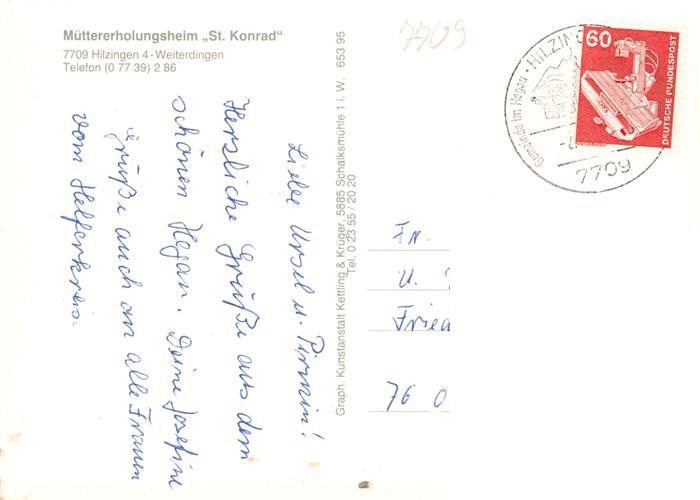 Müttererholungsheim „St. Konrad“
7709 Hilzingen 4-Weiterdingen
Telefon (0 77 39) 2 86
Liebe Ursel u. Pirmin!
Herzliche Grüße aus dem
schönen Hegau. Deine Josefine
Grüße auch an alle Frauen
vom Helferkreis.
Graph. Kunstanstalt Kettling & Krüger, 5885 Schalksmühle 1 i. W. 653 95
Tel. 0 23 55 / 20 20
7709
Gemeinde im Hegau · HILZING
7709
60
DEUTSCHE BUNDESPOST
Fr.
U.
Fried
76 0